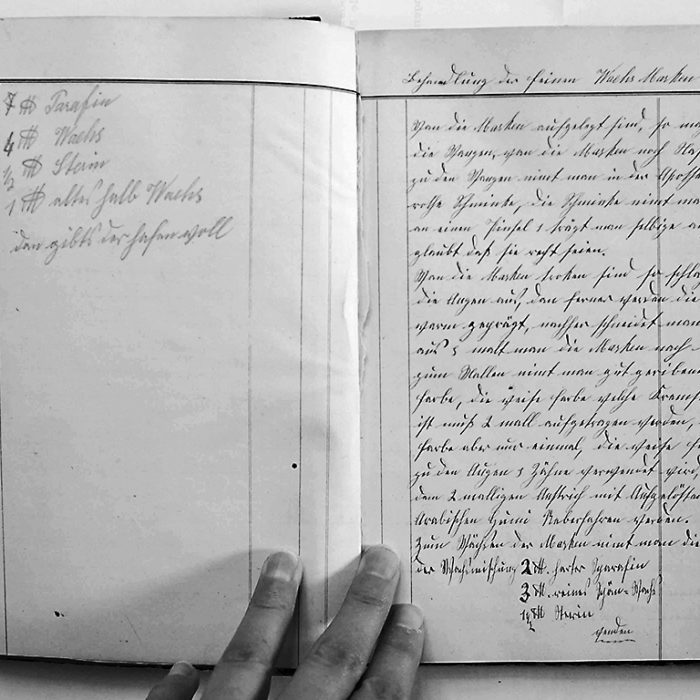 7 ℔ Parafin
4 ℔ Wachs
1/2 ℔ Sterin
1 ℔ altes halb Wachs
dan gibts der hafen voll
Behandlung der feinen Wachs Masken
Wan die Masken aufgelegt sind, so
die Wangen, wan die Masken noch
zu den Wangen nimt man in der
rothe Schminke, die Schminke nimt
an einen Pinsel & trägt man selbige
glaubt daß sie recht seien.
Wan die Masken troken sind so
die Augen aus, dan ferner werden die
warm geprägt, nachher schneidet man
aus & malt man die Masken noch
zum Mallen nimt man gut
farbe, die weise farbe welche
ist muß 2 mall aufgetragen werden,
farbe aber nur einmal, die weise
zu den Augen & Zähne verwendet wird,
dem 2 malligen Anstrich mit
Arabischen Gumi Ueberfahren werden.
Zum Wächsen der Masken nimt man die
der Wachsmischung 2 ℔. harter Parafin
3 ℔. reines Wachs
1/2 ℔ Sterin
wenden